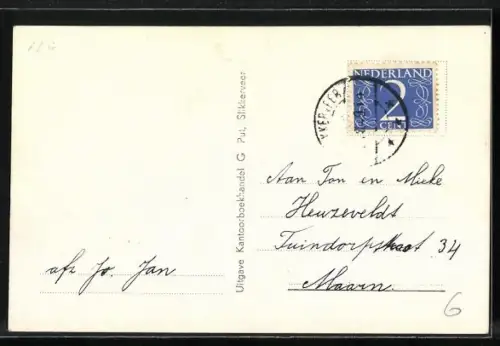 NEDERLAND
2
CENT
Uitgave Kantoorboekhandel G Put, Slikkerveer
Aan Ton en Mieke
Heuzeveldt
Tuindorpstraat 34
Maarn.
afz Jo. Jan
6